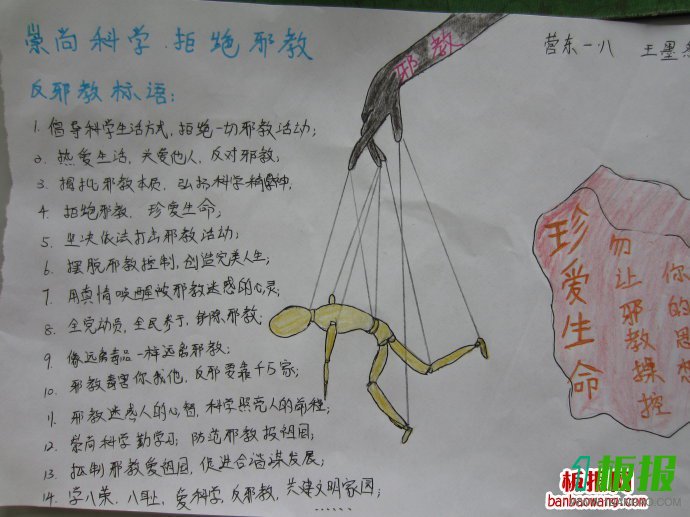 崇尚科学·拒绝邪教
反邪教标语：
1. 倡导科学生活方式，拒绝一切邪教活动；
2. 热爱生活，关爱他人，反对邪教；
3. 揭批邪教本质，弘扬科学精神，
4. 拒绝邪教，珍爱生命；
5. 坚决依法打击邪教活动；
6. 摆脱邪教控制，创造完美人生；
7. 用真情唤醒被邪教迷惑的心灵；
8. 全党动员，全民参于，铲除邪教；
9. 像远离毒品一样远离邪教；
10. 邪教毒害你我他，反邪要靠千万家；
11. 邪教迷惑人的心智，科学照亮人的前程；
12. 崇尚科学勤学习，防范邪教报祖国；
13. 抵制邪教爱祖国，促进合谐谋发展；
14. 学八荣、八耻，爱科学反邪教，共建文明家园；
……
邪教
营东一八 王墨
珍爱生命
勿让邪教操控
你的思想
板报
板报网
banbaowang.com